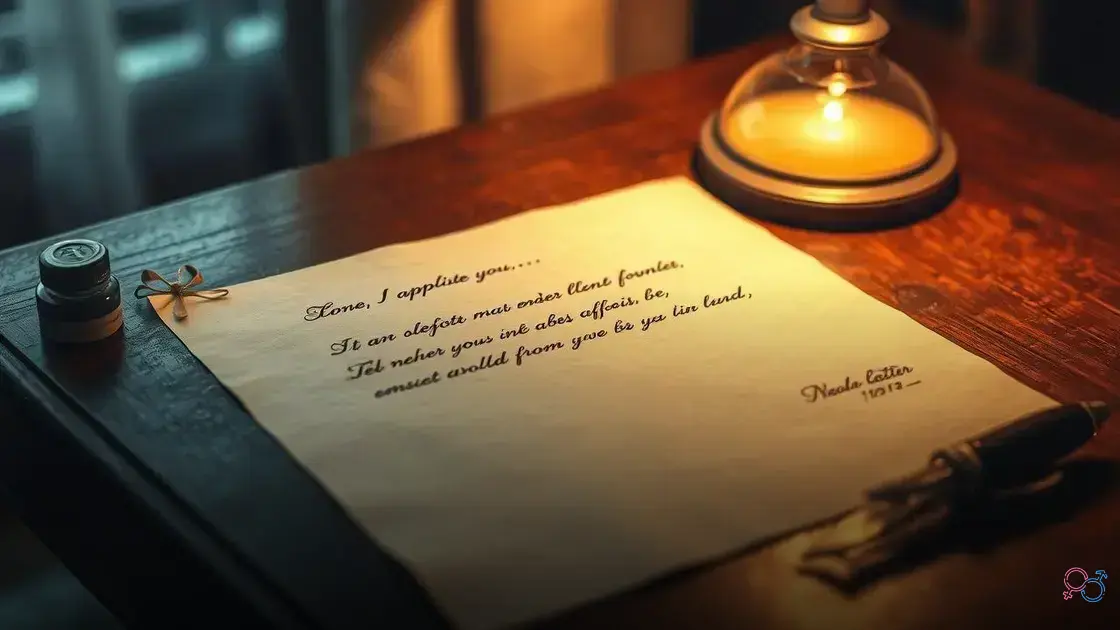 Zone, I appliste you,...
It an olefott mat ender llent founter.
Tel neher yous ink abes affcois. be,
emsiet avolld from ywe br ya lin lurd,
Neola letter